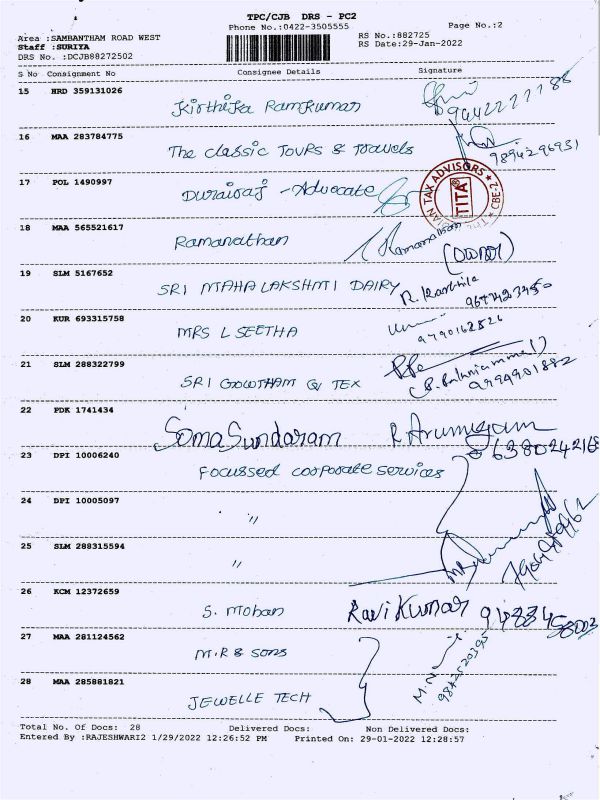 TPC/CJB DRS - PC2
Phone No.:0422-3505555 Page No.:2
Area :SAMBANTHAM ROAD WEST RS No.:882725
Staff :SURIYA RS Date:29-Jan-2022
DRS No. :DCJB88272502
S No Consignment No Consignee Details Signature
15 HRD 359131026
Kirthika Ramkumar 9442277188
16 MAA 283784775
The classic Tours & Travels 9894296931
17 POL 1490997
Duraisaj - Advocate
TAX ADVISORS * CBE-2
TITA
18 MAA 565521617
Ramanathan Ramanathan
19 SLM 5167652
SRI MAHA LAKSHMI DAIRY R. Karthika
20 KUR 693315758
MRS L SEETHA 9790162826
21 SLM 288322799
SRI GOWTHAM Q TEX 9994901882
22 PDK 1741434
SomaSundaram R Arumugam
6380242168
23 DPI 10006240
Focussed corporate services
24 DPI 10005097
"
25 SLM 288315594
"
26 KCM 12372659
S. Mohan Ravi Kumar 9488458003
27 MAA 281124562
M.R & SONS
9842520395
28 MAA 285881821
JEWELLE TECH
Total No. Of Docs: 28 Delivered Docs: Non Delivered Docs:
Entered By :RAJESHWARI2 1/29/2022 12:26:52 PM Printed On: 29-01-2022 12:28:57